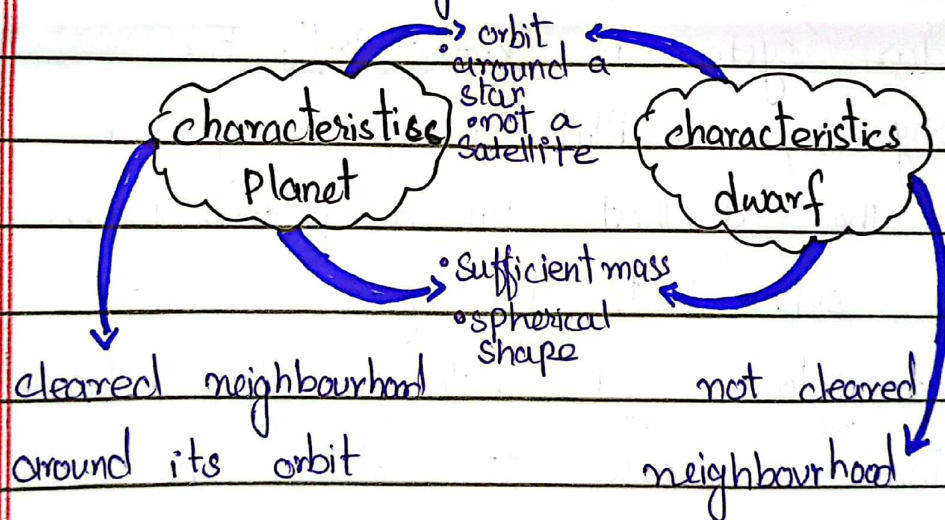 orbit
• around a
star
• not a
satellite
characteristics
planet
characteristics
dwarf
• sufficient mass
• spherical
shape
cleared neighbourhood
around its orbit
not cleared
neighbourhood